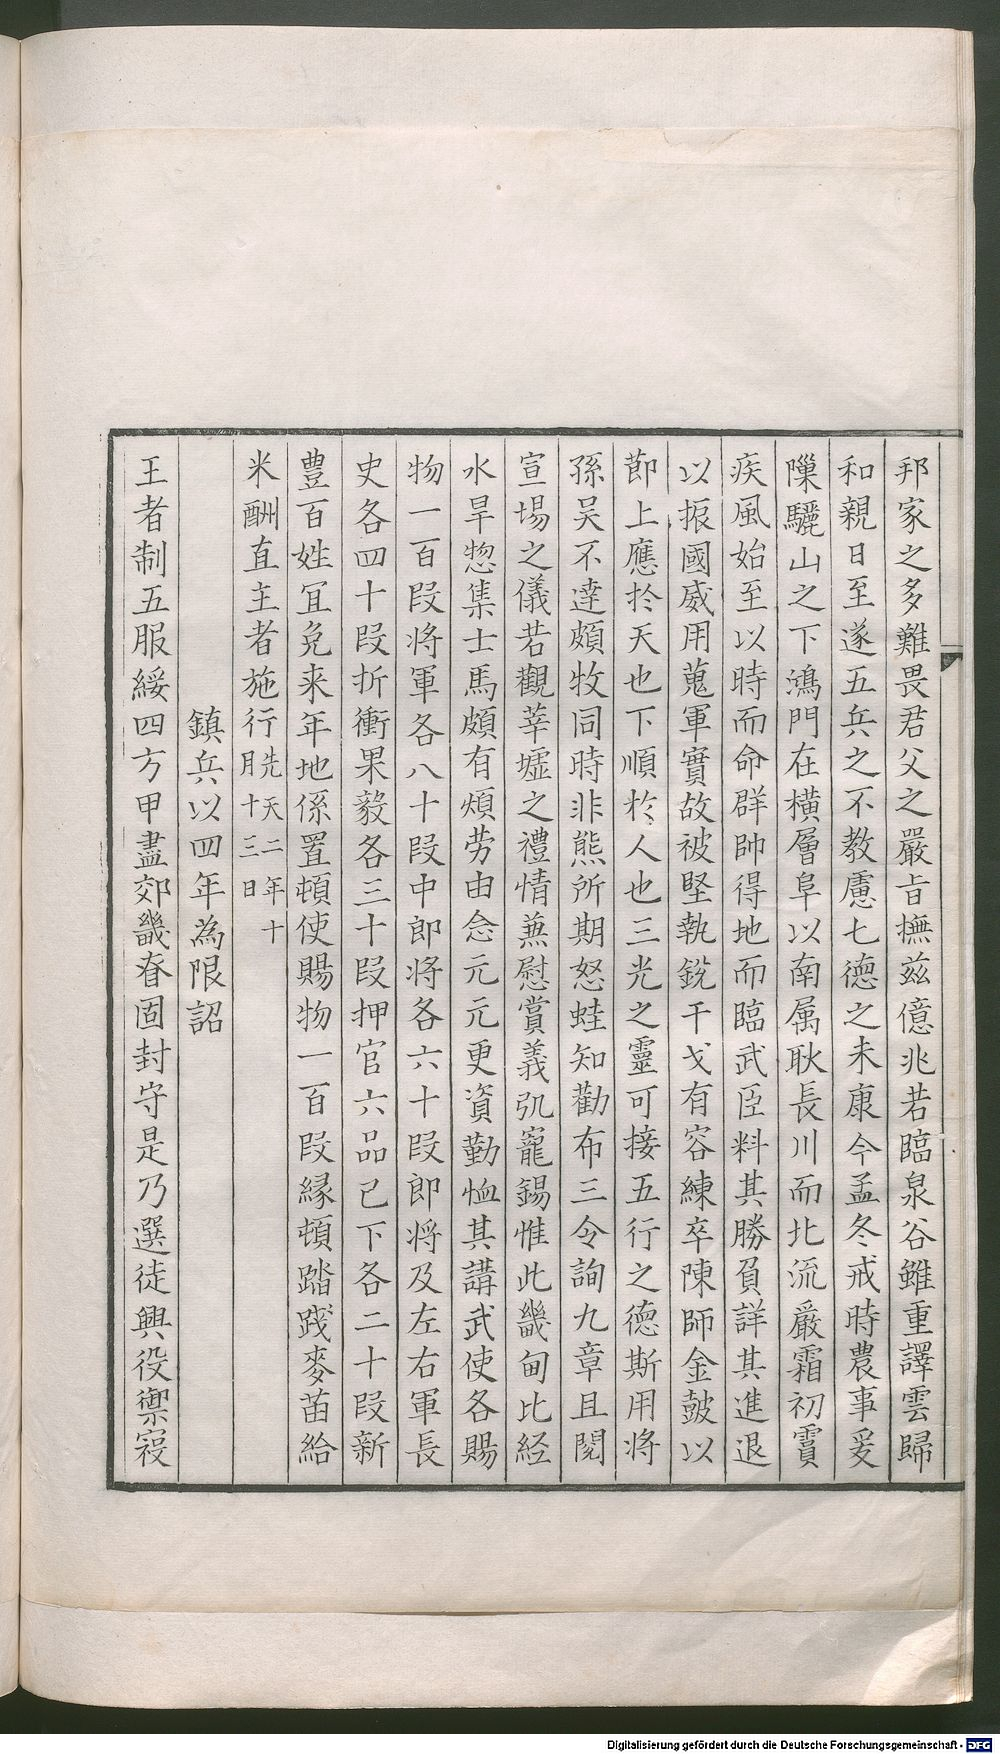 邦家之多難畏君父之嚴旨撫兹億兆若臨泉谷雖重譯雲歸
和親日至遂五兵之不教慮七德之未康今孟冬戒時農事爰
隟驪山之下鴻門在横層阜以南属耿長川而北流嚴霜初霣
疾風始至以時而命群帥得地而臨武臣料其勝負詳其進退
以振國威用蒐軍實故被堅執銳干戈有容練卒陳師金鼓以
節上應扵天也下順扵人也三光之靈可接五行之德斯用将
孫吴不逹頗牧同時非熊所期怒蛙知勸布三令詢九章且閱
宣場之儀若觀莘墟之禮情蕪慰賞義汎寵錫惟此畿甸比経
水旱惣集士馬頗有煩劳由念元元更資勤恤其講武使各賜
物一百段将軍各八十段中郎将各六十段郎将及左右軍長
史各四十段折衝果毅各三十段押官六品已下各二十段新
豊百姓冝免来年地係置頓使賜物一百段緣頓踏踐麥苗給
米酬直主者施行先天二年十月十三日
鎮兵以四年為限詔
王者制五服綏四方甲盡郊畿眘固封守是乃選徒興役禦寇
Digitalisierung gefördert durch die Deutsche Forschungsgemeinschaft - DFG